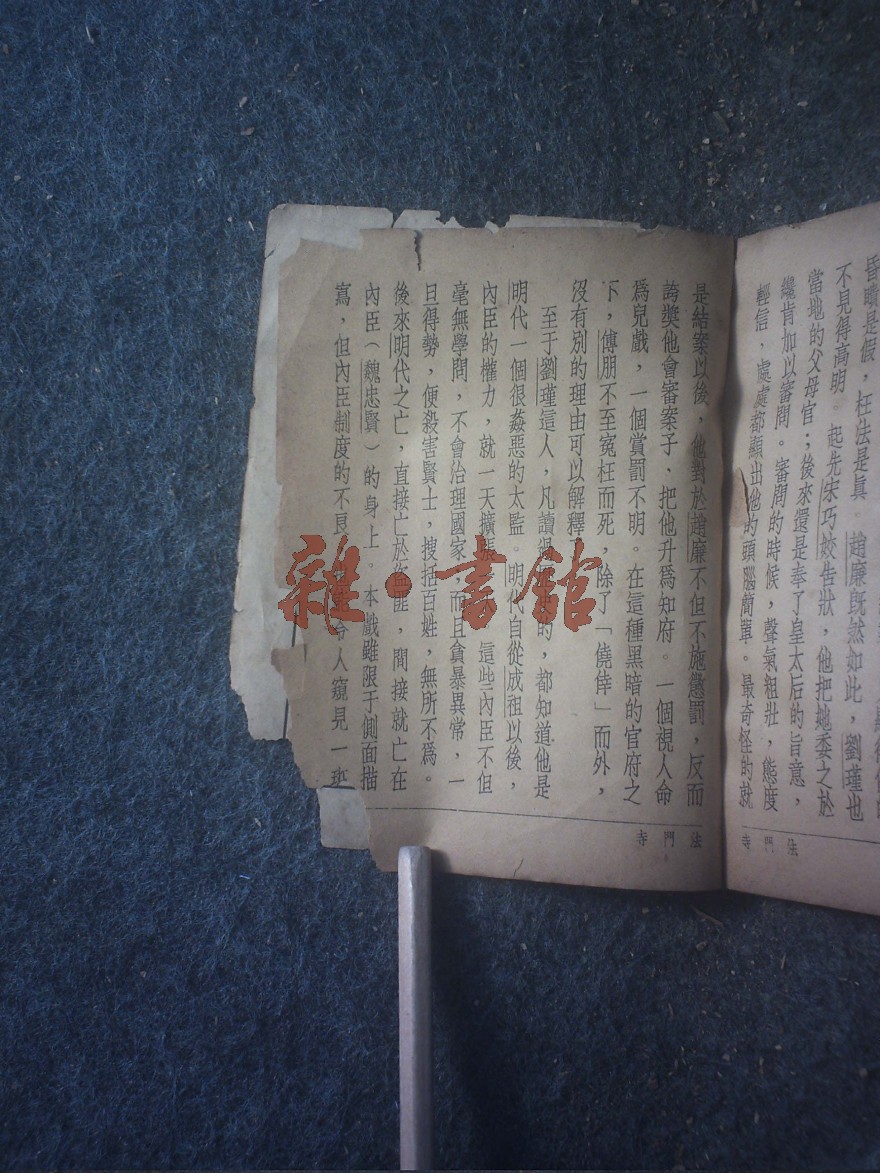 昏瞶是假，枉法是眞。趙廉既然如此，劉瑾也
不見得高明。起先宋巧姣告狀，他把她委之於
當地的父母官；後來還是奉了皇太后的旨意，
纔肯加以審問。審問的時候，聲氣粗壯，態度
輕信，處處都顯出他的頭腦簡單。最奇怪的就
是結案以後，他對於趙廉不但不施懲罰，反而
誇獎他會審案子，把他升爲知府。一個視人命
爲兒戲，一個賞罰不明。在這種黑暗的官府之
下，傅朋不至冤枉而死，除了「僥倖」而外，
沒有別的理由可以解釋
至于劉瑾這人，凡讀過的，都知道他是
明代一個很姦惡的太監。明代自從成祖以後，
內臣的權力，就一天擴張這些內臣不但
毫無學問，不會治理國家，而且貪暴異常，一
旦得勢，便殺害賢士，搜括百姓，無所不爲。
後來明代之亡，直接亡於能，間接就亡在
內臣（魏忠賢）的身上。本戲雖限于側面描
寫，但內臣制度的不良令人窺見一斑
法門寺
法門寺
雜·書館